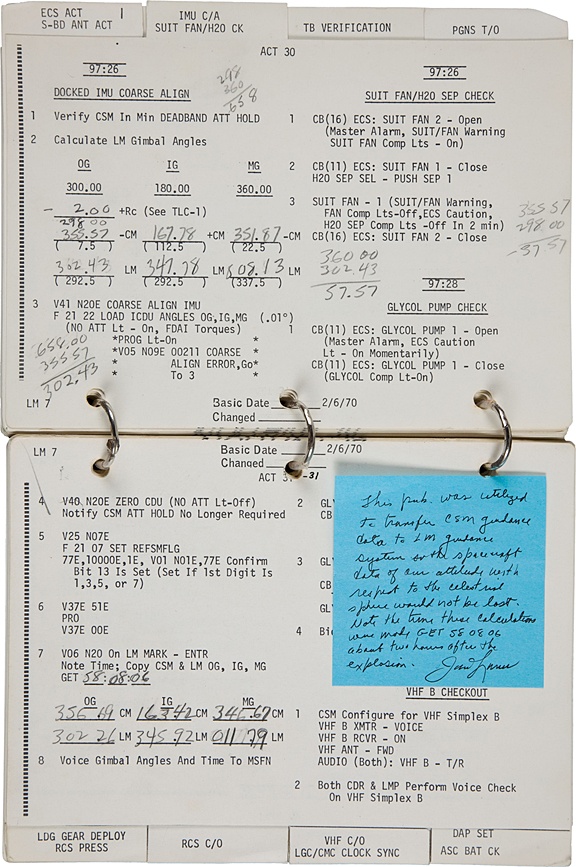 ECS ACT
S-BD ANT ACT
IMU C/A
SUIT FAN/H2O CK
TB VERIFICATION
PGNS T/O
ACT 30
97:26
DOCKED IMU COARSE ALIGN
298
360
658
1 Verify CSM In Min DEADBAND ATT HOLD
2 Calculate LM Gimbal Angles
OG IG MG
300.00 180.00 360.00
- 2.00 +Rc (See TLC-1)
298 00
355.57 -CM 167.78 +CM 351.87 -CM
( 7.5 ) ( 112.5 ) ( 22.5 )
302.43 LM 347.78 LM 008.13 LM
( 292.5 ) ( 292.5 ) (337.5 )
3 V41 N20E COARSE ALIGN IMU
F 21 22 LOAD ICDU ANGLES OG,IG,MG (.01°)
(NO ATT Lt - On, FDAI Torques)
*PROG Lt-On *
*V05 N09E 00211 COARSE *
* ALIGN ERROR,Go*
* To 3 *
658.00
355 57
302.43
97:26
SUIT FAN/H2O SEP CHECK
1 CB(16) ECS: SUIT FAN 2 - Open
(Master Alarm, SUIT/FAN Warning
SUIT FAN Comp Lts - On)
2 CB(11) ECS: SUIT FAN 1 - Close
H2O SEP SEL - PUSH SEP 1
3 SUIT FAN - 1 (SUIT/FAN Warning,
FAN Comp Lts-Off,ECS Caution,
H2O SEP Comp Lts -Off In 2 min)
CB(16) ECS: SUIT FAN 2 - Close
355 57
298.00
-57 57
360 00
302.43
57.57
97:28
GLYCOL PUMP CHECK
1 CB(11) ECS: GLYCOL PUMP 1 - Open
(Master Alarm, ECS Caution
Lt - On Momentarily)
CB(11) ECS: GLYCOL PUMP 1 - Close
(GLYCOL Comp Lt-On)
LM 7
Basic Date 2/6/70
Changed
LM 7
Basic Date 2/6/70
Changed
-31
4 V40 N20E ZERO CDU (NO ATT Lt-Off)
Notify CSM ATT HOLD No Longer Required
5 V25 N07E
F 21 07 SET REFSMFLG
77E,10000E,1E, V01 N01E,77E Confirm
Bit 13 Is Set (Set If 1st Digit Is
1,3,5, or 7)
6 V37E 51E
PRO
V37E 00E
7 V06 N20 On LM MARK - ENTR
Note Time; Copy CSM & LM OG, IG, MG
GET 58:08:06
OG IG MG
356 69 CM 163 42 CM 346 67 CM
302 26 LM 345 92 LM 011 79 LM
8 Voice Gimbal Angles And Time To MSFN
2
3
4
This pub. was utilized
to transfer CSM guidance
data to LM guidance
system so the spacecraft
data of our attitude with
respect to the celestrial
sphere would not be lost.
Note the time these calculations
were made GET 58 08 06
about two hours after the
explosion.
VHF B CHECKOUT
1 CSM Configure for VHF Simplex B
VHF B XMTR - VOICE
VHF B RCVR - ON
VHF ANT - FWD
AUDIO (Both): VHF B - T/R
2 Both CDR & LMP Perform Voice Check
On VHF Simplex B
LDG GEAR DEPLOY
RCS PRESS
RCS C/O
VHF C/O
LGC/CMC CLOCK SYNC
DAP SET
ASC BAT CK